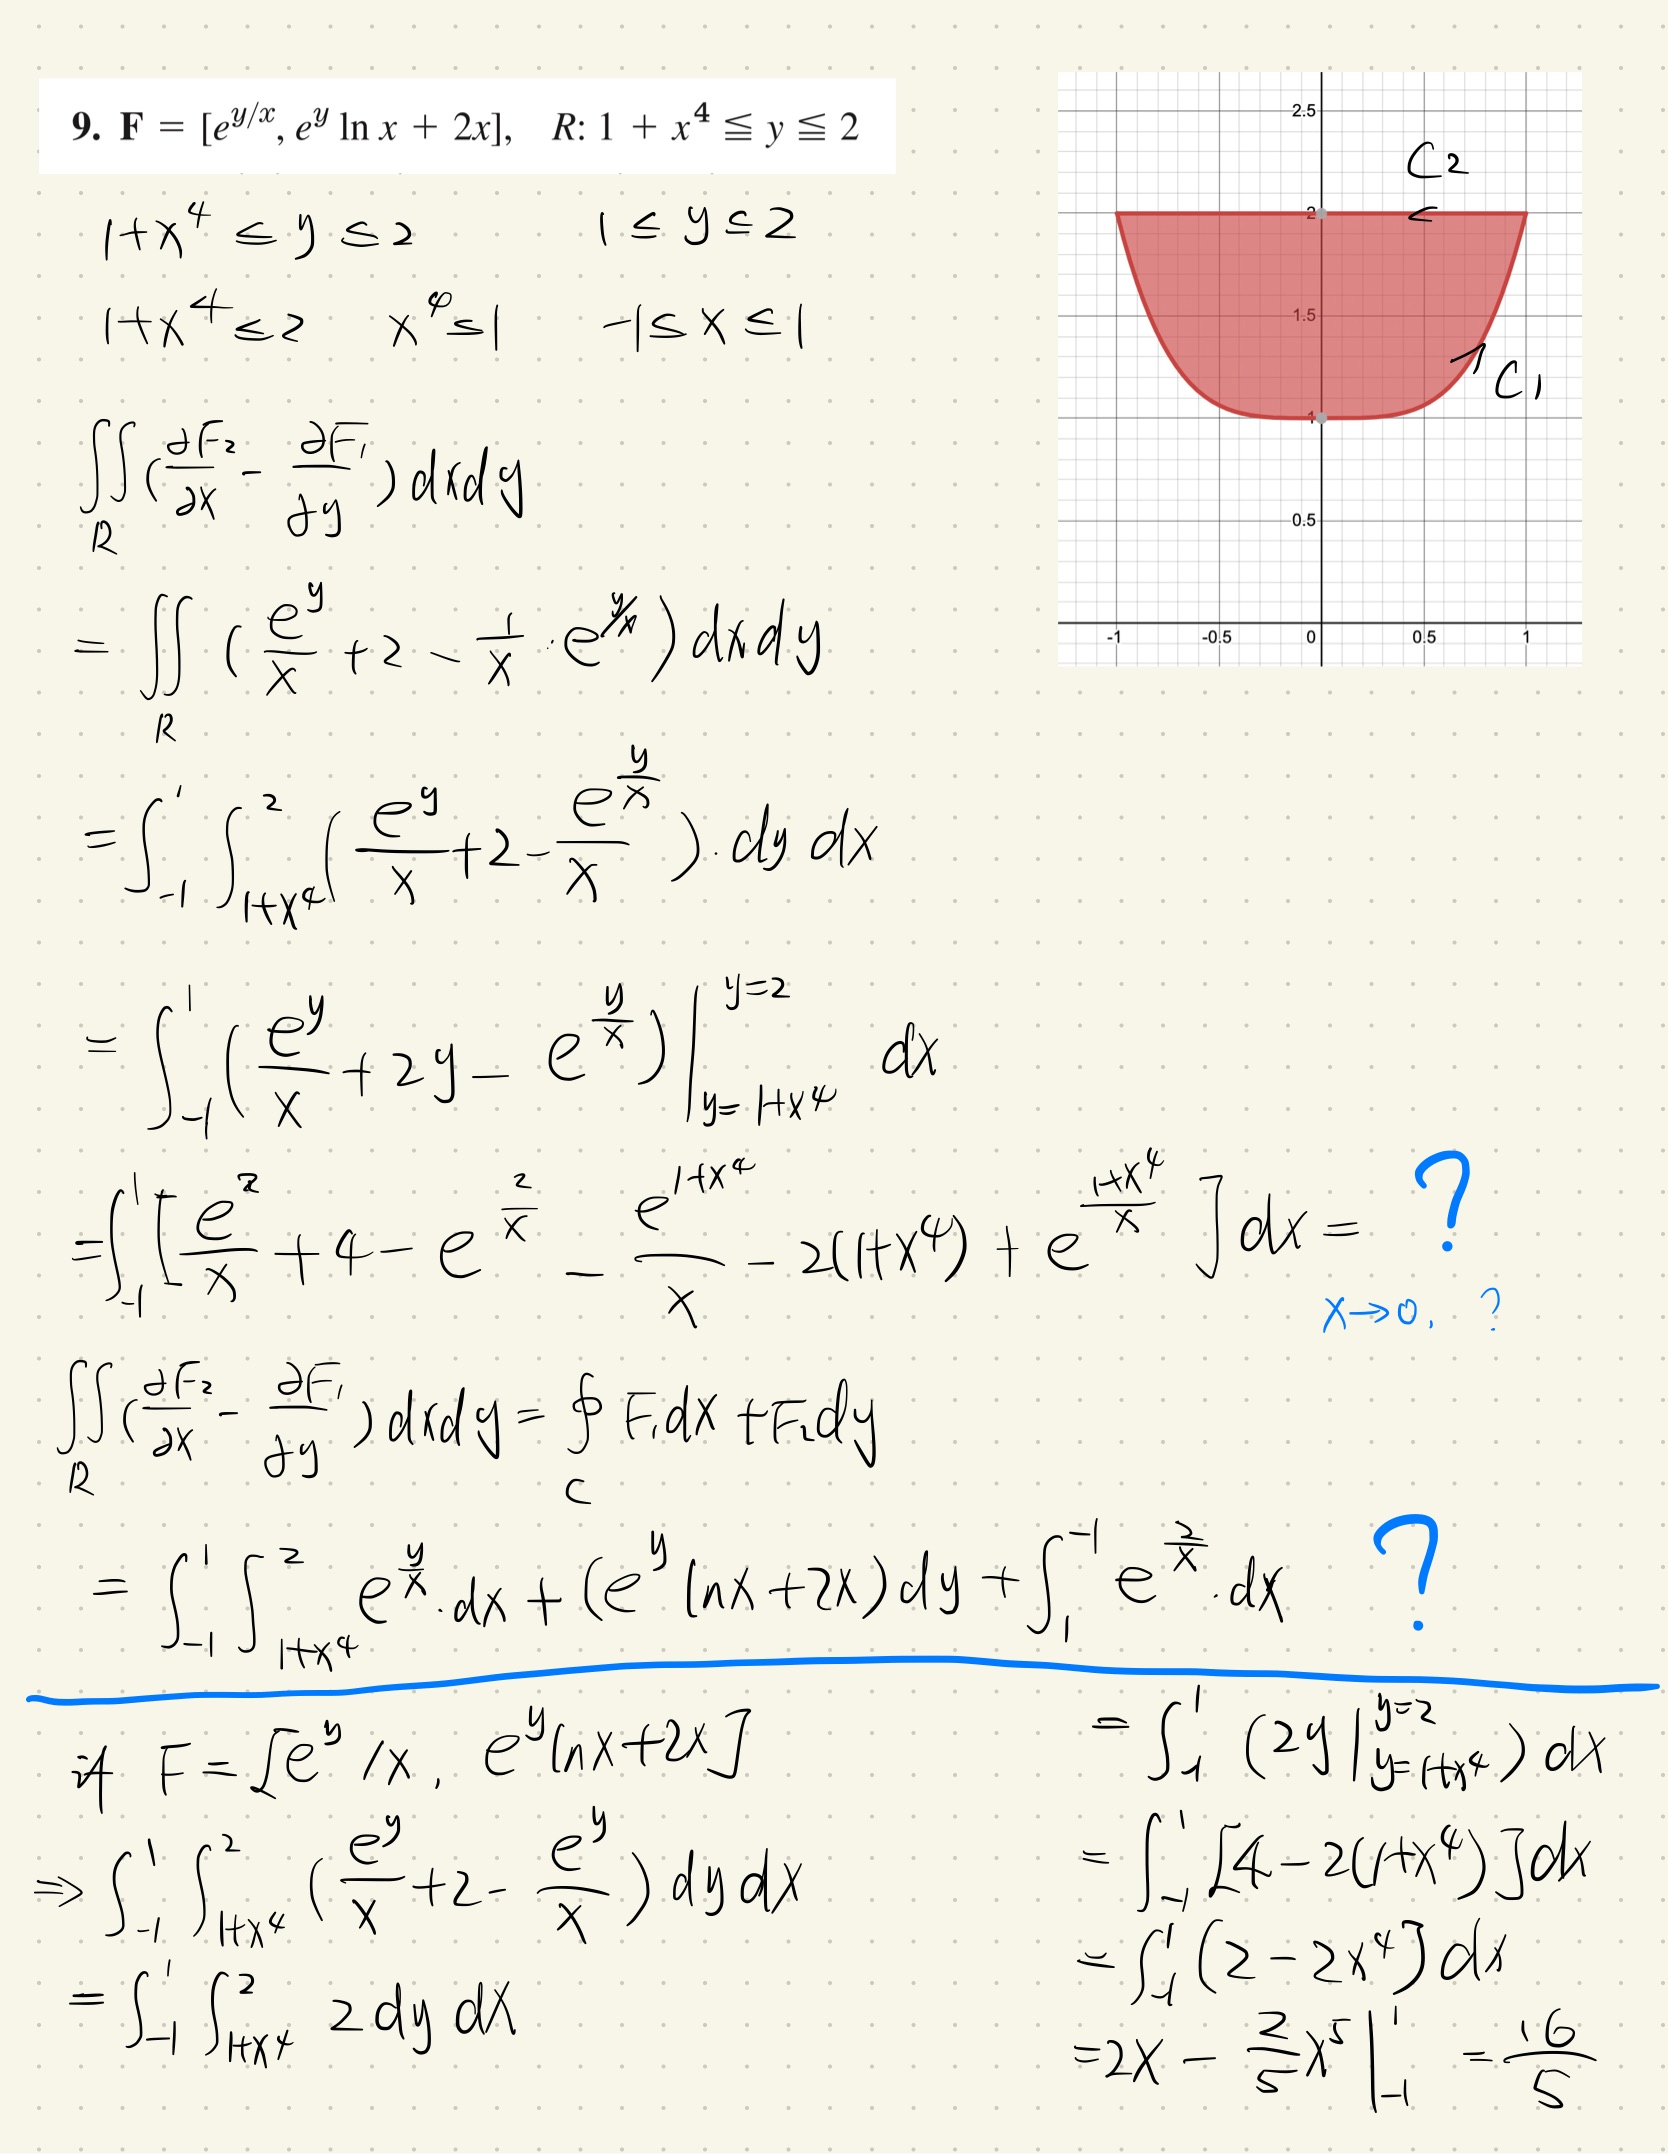 9. F = [e^{y/x}, e^y ln x + 2x], R: 1 + x^4 ≦ y ≦ 2
1+x^4 ≤ y ≤ 2 1 ≤ y ≤ 2
1+x^4 ≤ 2 x^4 ≤ 1 -1 ≤ x ≤ 1
∬_R (∂F₂/∂x - ∂F₁/∂y) dxdy
= ∬_R (e^y/x + 2 - 1/x · e^{y/x}) dxdy
= ∫_{-1}^{1} ∫_{1+x^4}^{2} (e^y/x + 2 - e^{y/x}/x) · dy dx
= ∫_{-1}^{1} (e^y/x + 2y - e^{y/x}) |_{y=1+x^4}^{y=2} dx
= ∫_{-1}^{1} [e^2/x + 4 - e^{2/x} - e^{1+x^4}/x - 2(1+x^4) + e^{(1+x^4)/x}] dx = ?
x→0, ?
∬_R (∂F₂/∂x - ∂F₁/∂y) dxdy = ∮_C F₁dx + F₂dy
= ∫_{-1}^{1} ∫_{1+x^4}^{2} e^{y/x} · dx + (e^y lnx + 2x) dy + ∫_{1}^{-1} e^{2/x} · dx ?
if F = [e^y/x, e^y lnx + 2x]
⇒ ∫_{-1}^{1} ∫_{1+x^4}^{2} (e^y/x + 2 - e^y/x) dy dx
= ∫_{-1}^{1} ∫_{1+x^4}^{2} 2 dy dx
= ∫_{-1}^{1} (2y |_{y=1+x^4}^{y=2}) dx
= ∫_{-1}^{1} [4 - 2(1+x^4)] dx
= ∫_{-1}^{1} (2 - 2x^4] dx
= 2x - 2/5 x^5 |_{-1}^{1} = 16/5
2.5
C2
2
1.5
C1
1
0.5
-1 -0.5 0 0.5 1